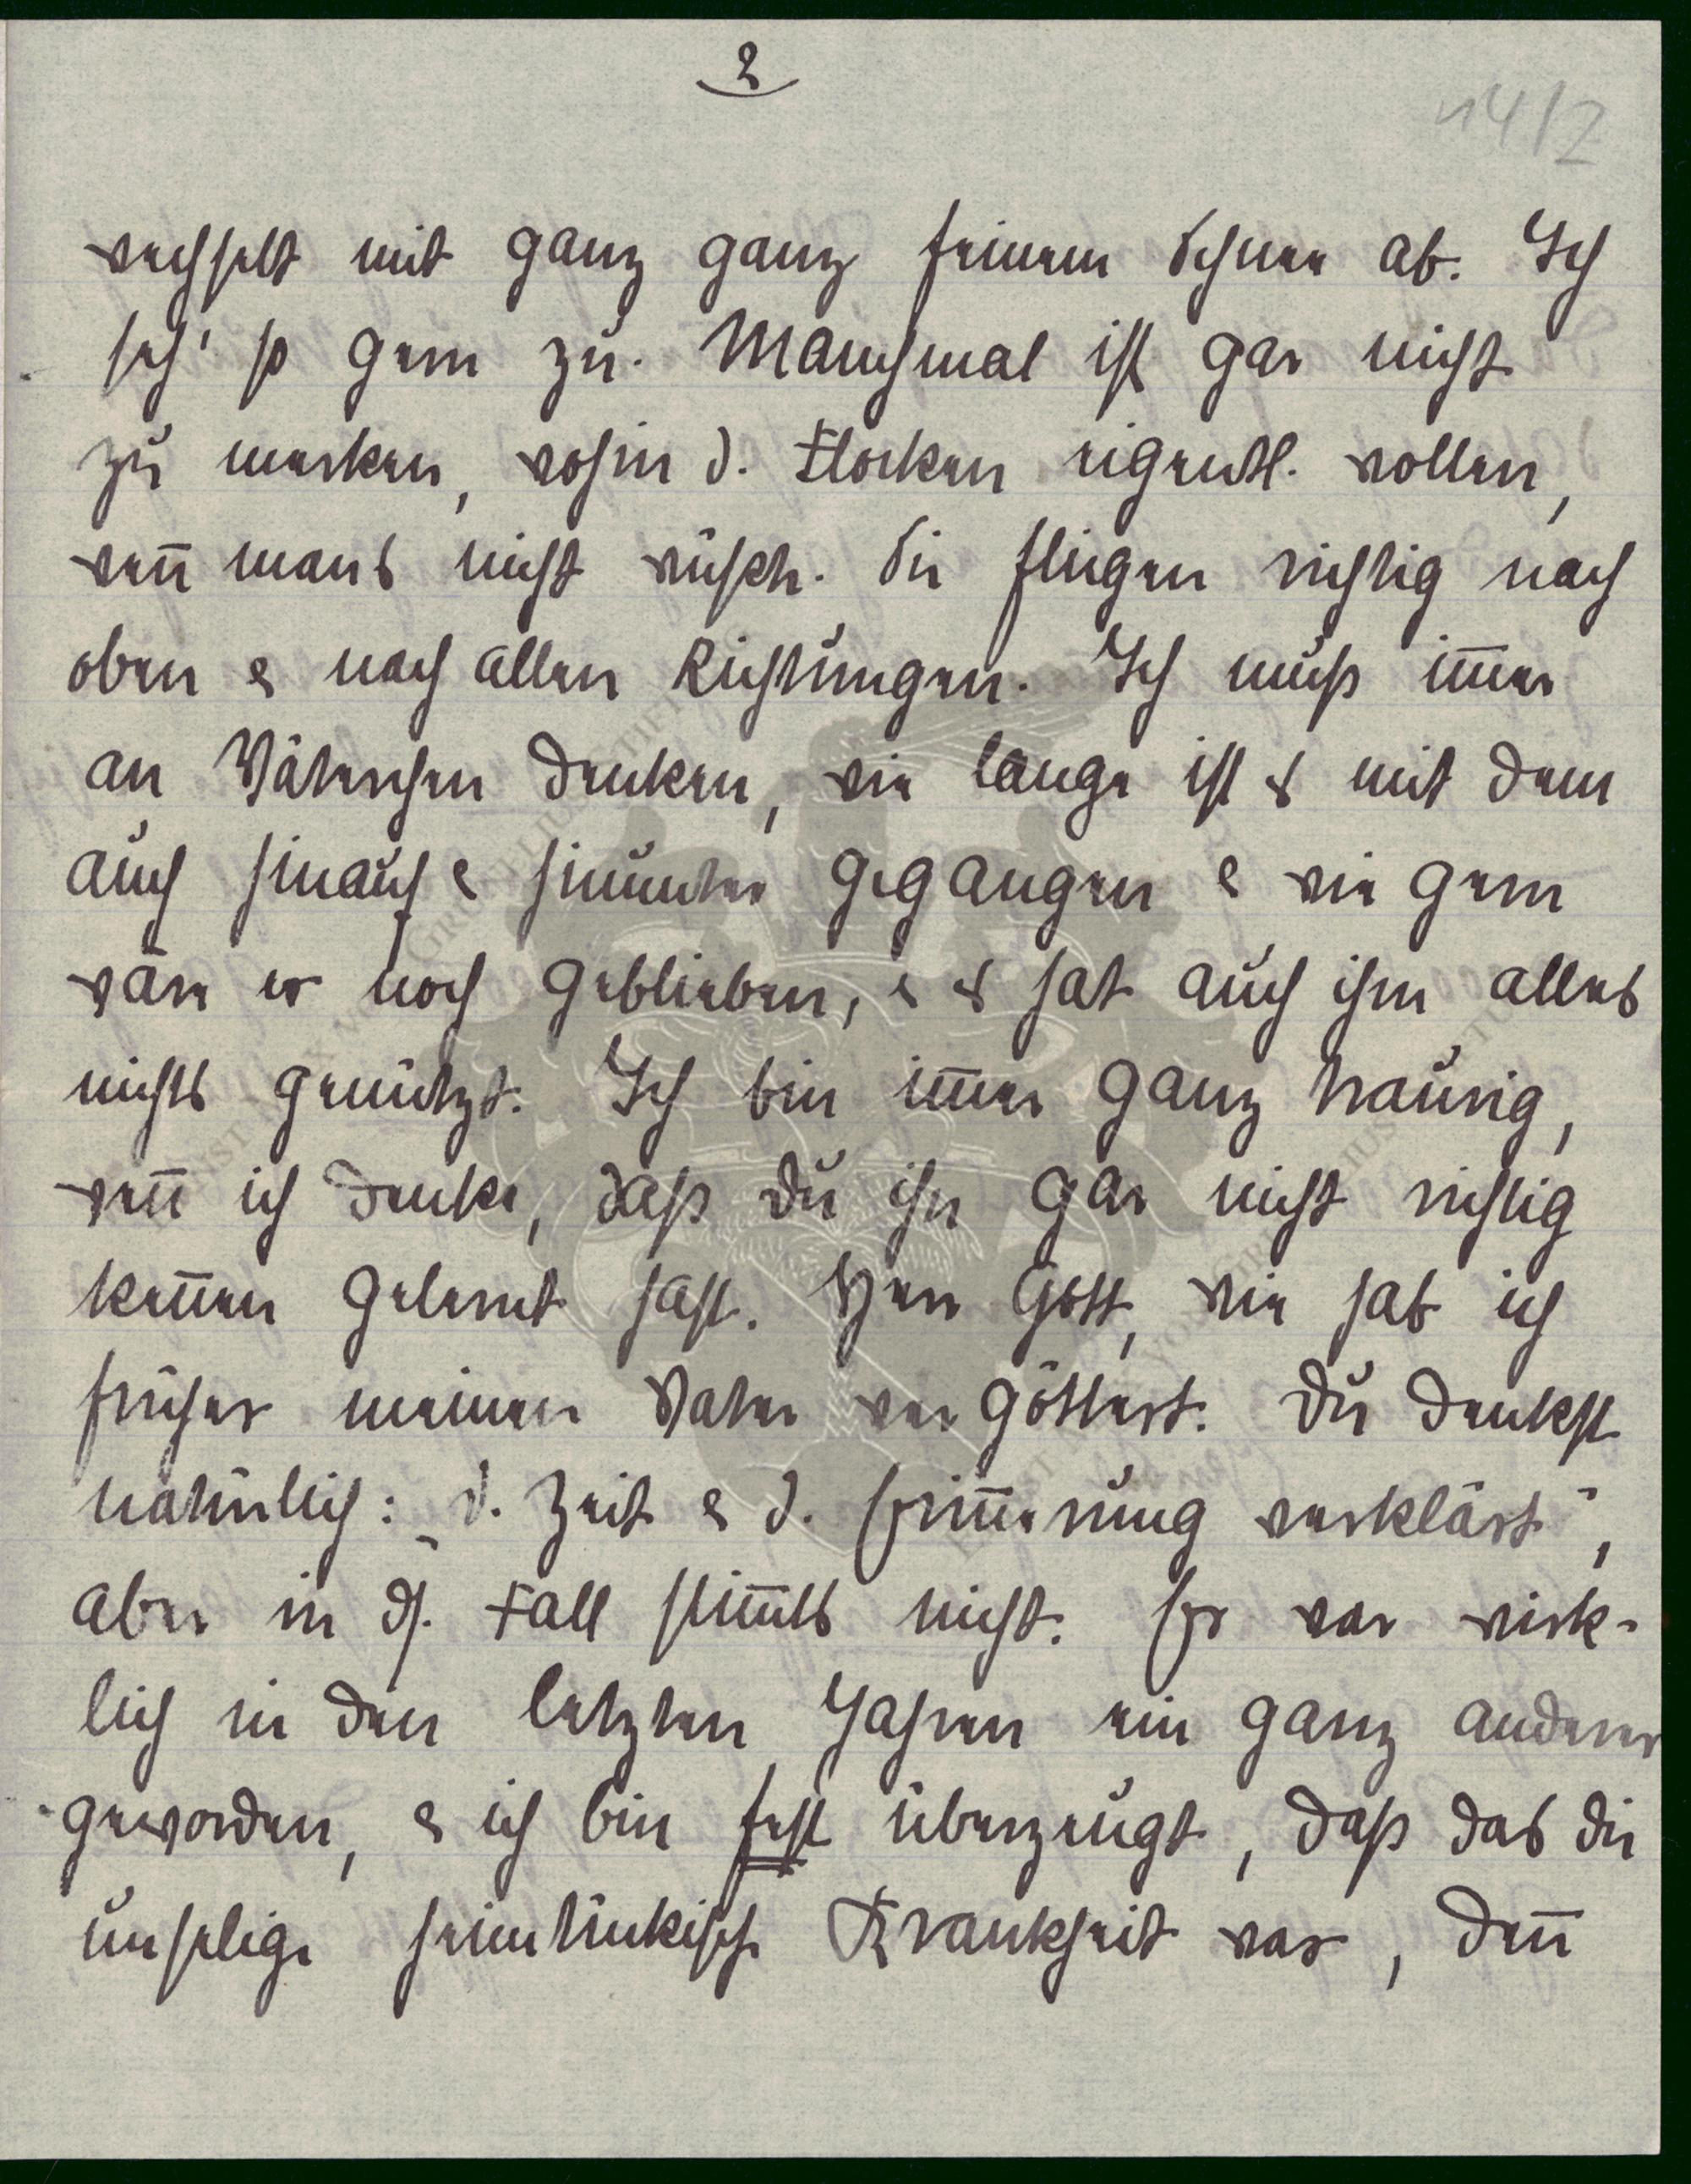 2
14/2
wechselt mit ganz ganz feinem Schnee ab. Ich
seh' so gern zu. Manchmal ist gar nicht
zu merken, wohin d. Flocken eigentl. wollen,
weñ mans nicht wüßte. Sie fliegen richtig nach
oben & nach allen Richtungen. Ich muß im̄er
an Väterchen denken, wie lange ist es mit dem
auch hinauf & hinunter gegangen & wie gern
wäre er noch geblieben, & es hat auch ihm alles
nichts genützt. Ich bin im̄er ganz traurig,
weñ ich denke, daß Du ihn gar nicht richtig
keñen gelernt hast. Herr Gott, wie hab ich
früher meinen Vater vergöttert. Du denkst
natürlich: „d. Zeit & d. Eriñerung verklärt",
aber in ds. Fall stim̄ts nicht. Er war wirk-
lich in den letzten Jahren ein ganz anderer
geworden, & ich bin fest überzeugt, daß das die
unselige heimtückische Krankheit war, deñ